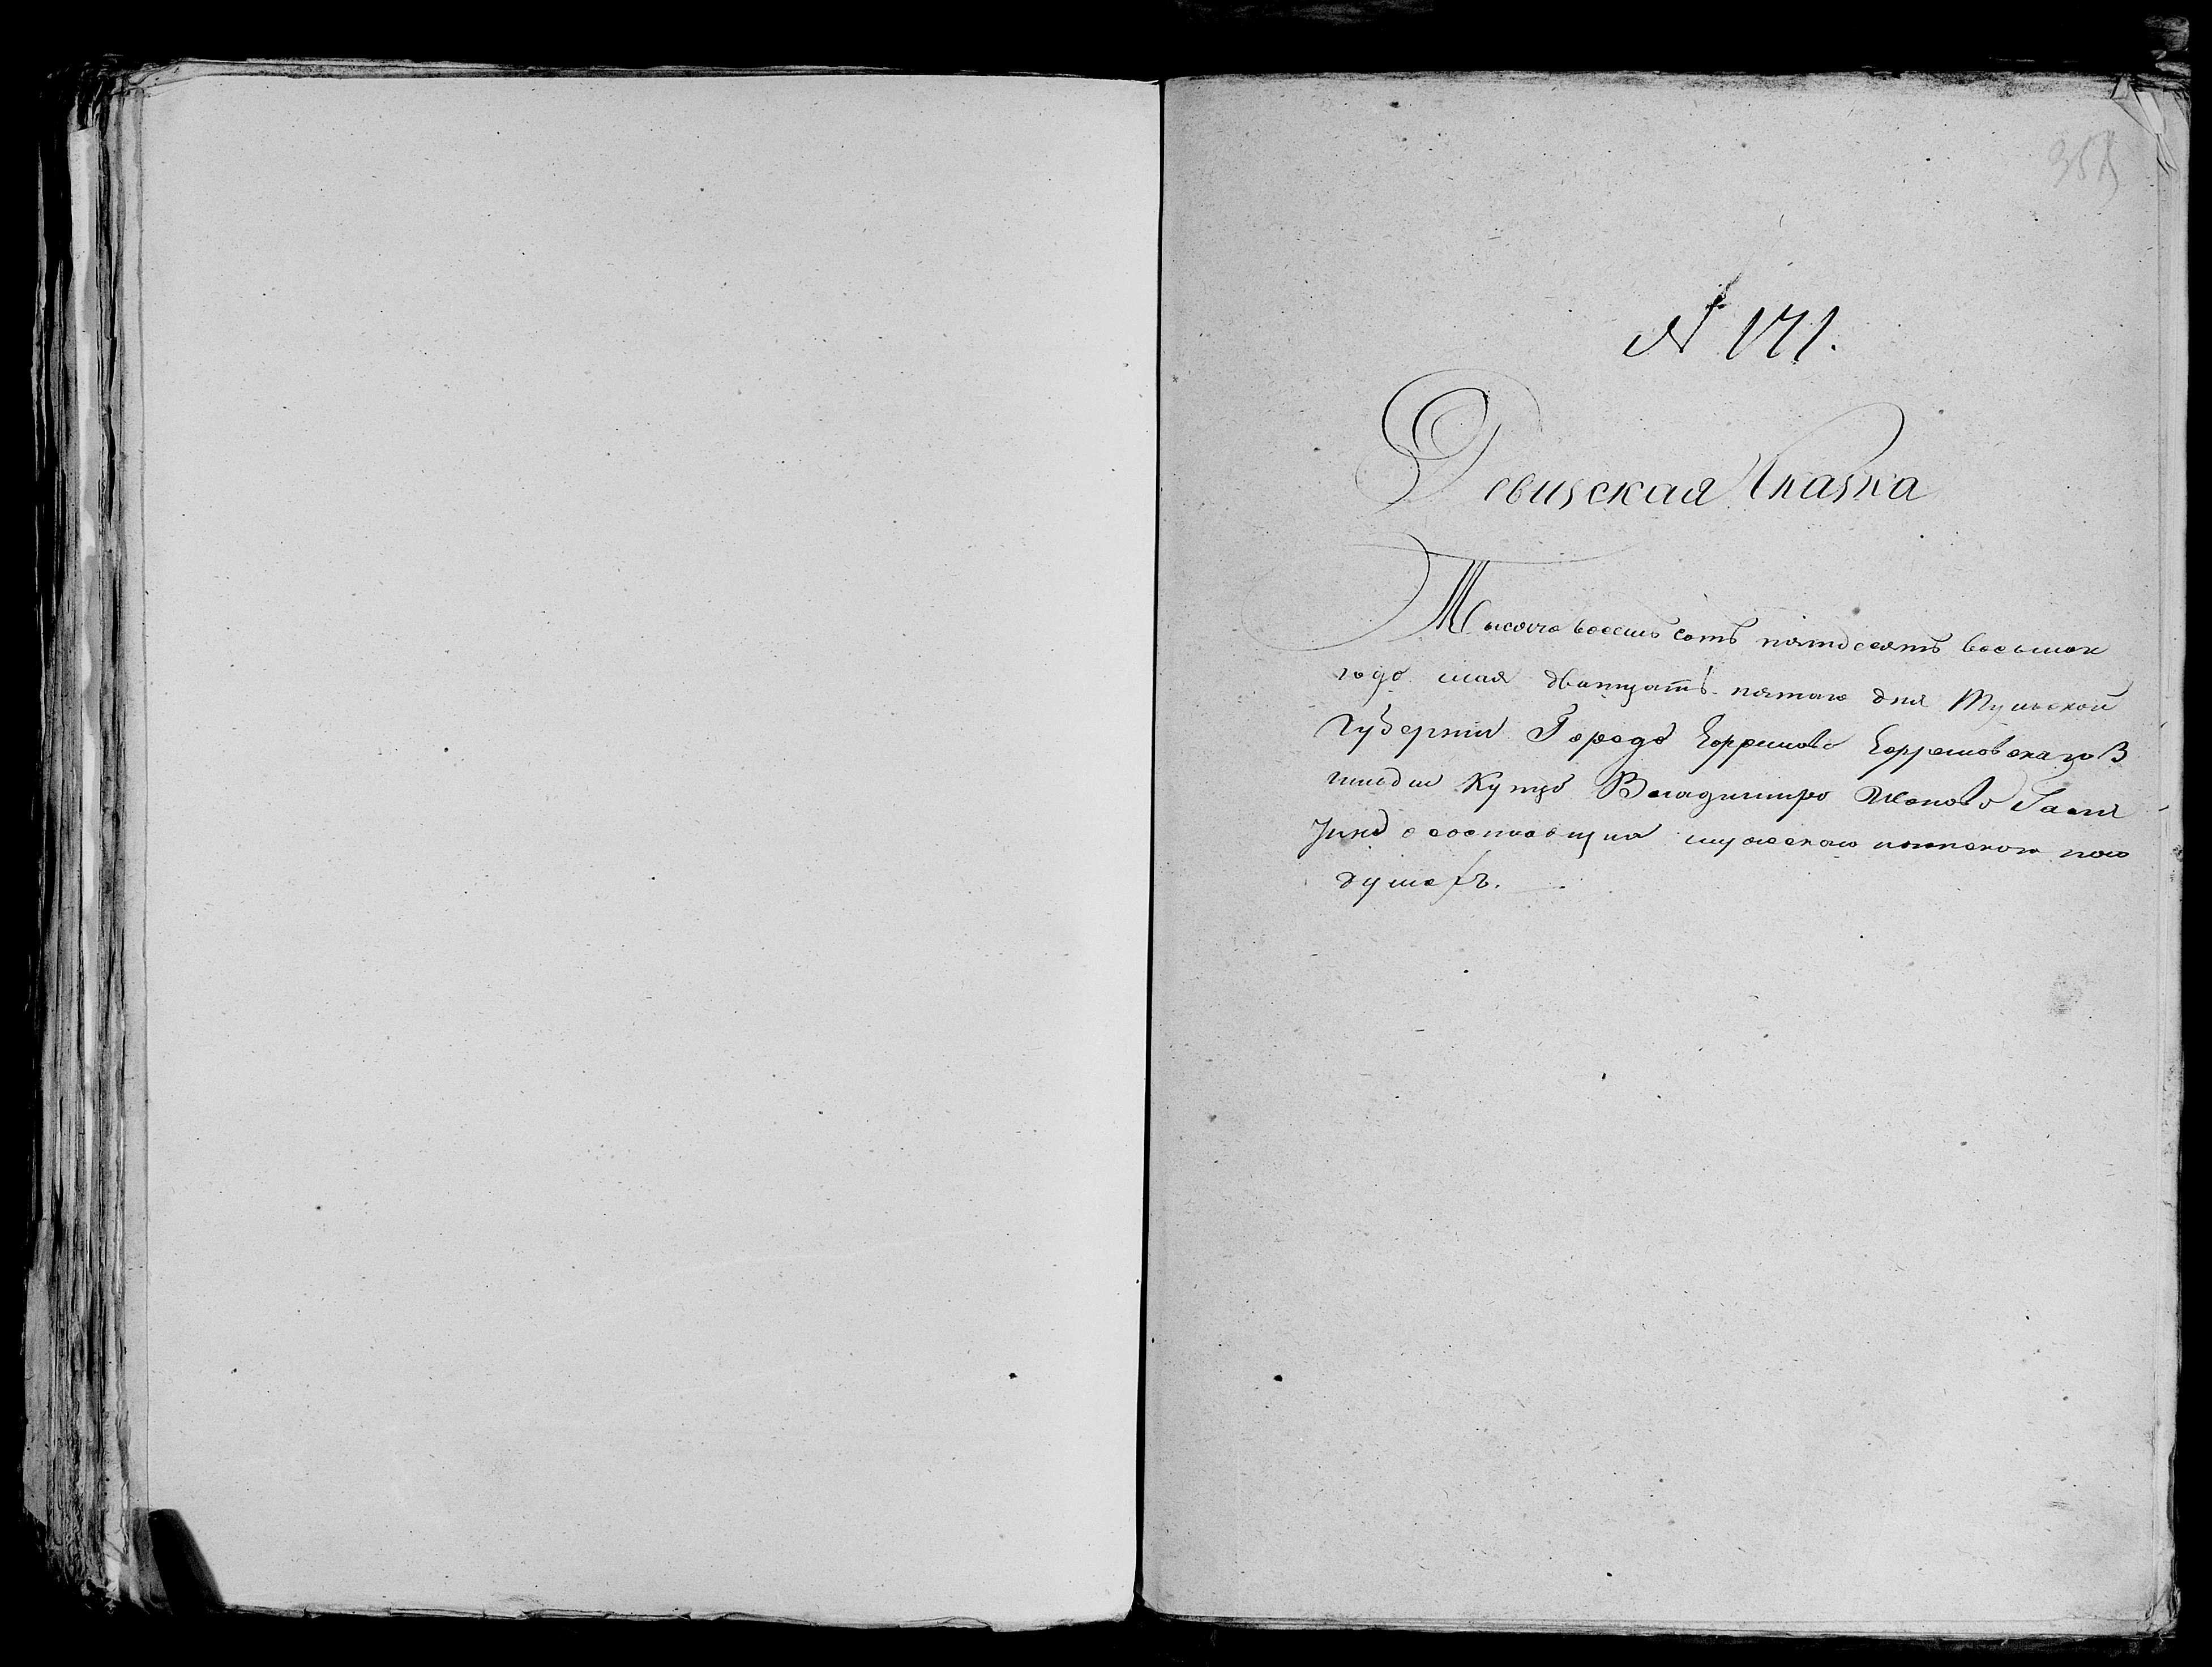 № 171.
Ревизская Сказка
Тысяча восемь сотъ пятдесятъ восьмаго
года мая дватцать пятаго дня Тульской
Губернии Города Ефремова Ефремовскаго 3
гильдии Купца Владимира Иванова
о состоящихъ мужескаго и женскаго пола
душахъ.